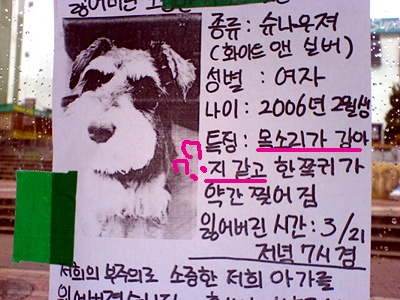 잃어버린 소중한
종류 : 슈나우져
(화이트 앤 실버)
성별 : 여자
나이 : 2006년 2월생
특징 : 목소리가 강아
지 같고 한쪽귀가
약간 찢어짐
잃어버린 시간 : 3/21
저녁 7시경
저희의 부주의로 소중한 저희 아가를
잃어버렸습니다